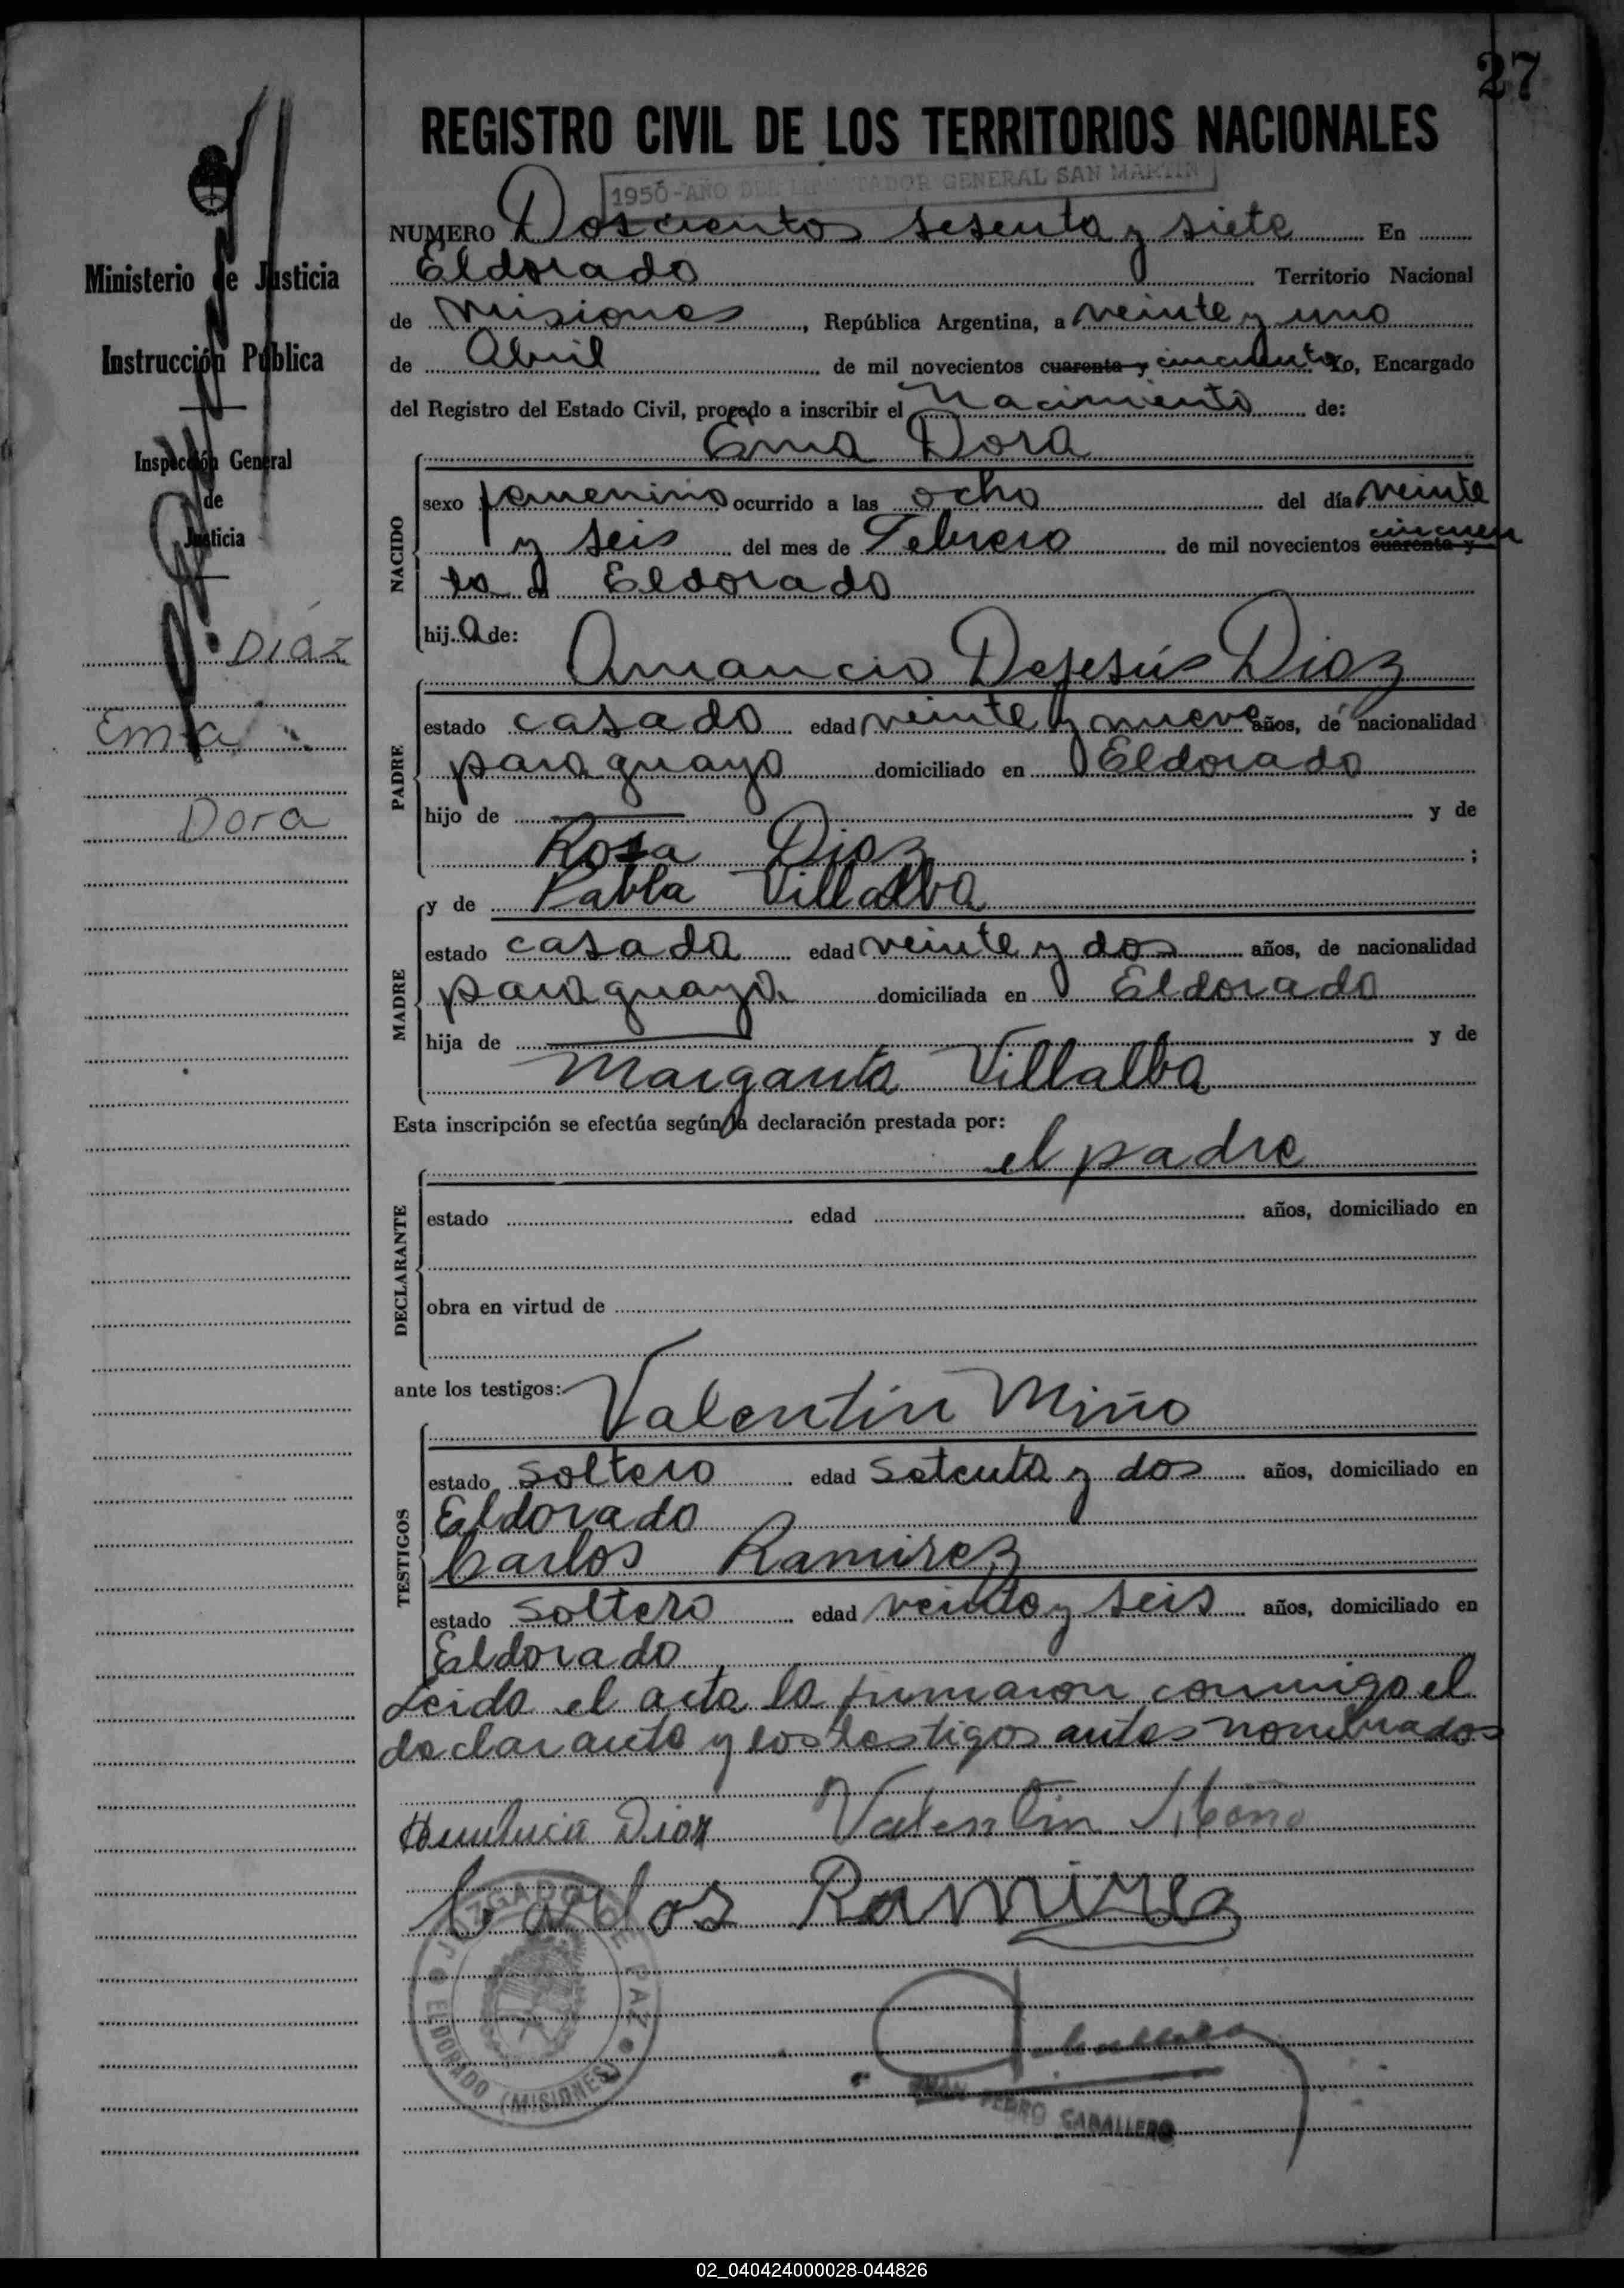 27
REGISTRO CIVIL DE LOS TERRITORIOS NACIONALES
1950-AÑO DEL LIBERTADOR GENERAL SAN MARTIN
NUMERO Doscientos sesenta y siete En
Eldorado Territorio Nacional
de Misiones, República Argentina, a veinte y uno
de Abril de mil novecientos cuarenta y cincuenta Yo, Encargado
del Registro del Estado Civil, procedo a inscribir el Nacimiento de:
Ema Dora
NACIDO
sexo femenino ocurrido a las ocho del día veinte
y seis del mes de Febrero de mil novecientos cuarenta y cincuen
ta en Eldorado
hij.a de:
Amancio Dejesús Diaz
PADRE
estado casado edad veinte y nueve años, de nacionalidad
paraguayo domiciliado en Eldorado
hijo de y de
Rosa Diaz ;
y de Pabla Villalba
MADRE
estado casada edad veinte y dos años, de nacionalidad
paraguaya domiciliada en Eldorado
hija de y de
Margarita Villalba
Esta inscripción se efectúa según la declaración prestada por:
el padre
DECLARANTE
estado edad años, domiciliado en
obra en virtud de
ante los testigos:
Valentín Miño
TESTIGOS
estado soltero edad setenta y dos años, domiciliado en
Eldorado
Carlos Ramirez
estado soltero edad veinte y seis años, domiciliado en
Eldorado
Leida el acta la firmaron conmigo el
declarante y los testigos antes nombrados
Diaz Valentin
Carlos Ramirez
JUZGADO DE PAZ
ELDORADO (MISIONES)
JUAN PEDRO CABALLERO
Ministerio de Justicia
Instrucción Pública
Inspección General
de
Justicia
DIAZ
Ema
Dora
02_040424000028-044826